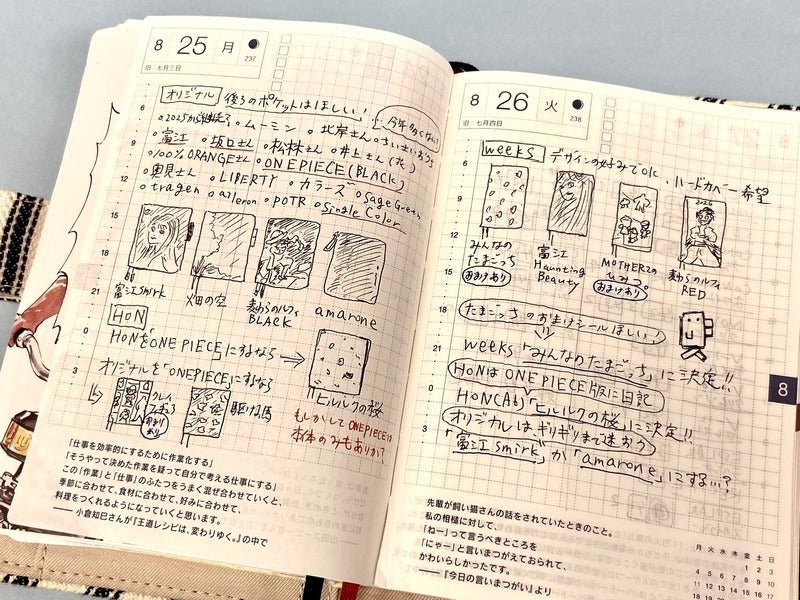 8 25 月
237
旧：七月三日
オリジナル 後ろのポケットはほしい！
今年多くない？
○2025ms継続 ○ムーミン ○北岸さん ○ちいさいおうち
○富江 ○坂口さん ○松林さん ○井上さん(花)
○100% ORANGEさん ○ONE PIECE(BLACK)
○奥見さん ○LIBERTY ○カラーズ ○Sage Green
○tragen ○azlemon ○POTR ○Single Color
富江 smirk
火田の空
麦わらのルフィ BLACK
amarone
HON
HONを「ONE PIECE」にするなら→
ヒルルクの桜
オリジナルを「ONEPIECE」にするなら
おまけあり
駆ける馬
もしかしてONEPIECEは
本体のみもありか？
6
9
12
15
18
21
0
3
「仕事を効率的にするために作業化する」
「そうやって決めた作業を疑って自分で考える仕事にする」
この「作業」と「仕事」のふたつをうまく混ぜ合わせていくと、
季節に合わせて、食材に合わせて、好みに合わせて、
料理をつくれるようになっていくと思います。
――小倉知巳さんが『王道レシピは、変わりゆく。』の中で
8 26 火
238
旧：七月四日
weeks デザインの好みでOK、ハードカバー希望
みんなの
たまごっち
おまけあり
富江
Haunting
Beauty
MOTHER2の
ひみつ。
おまけあり
2026
麦わらのルフィ
RED
たまごっちのおまけシールほしい！
weeks「みんなのたまごっち」に決定!!
HONはONE PIECE版に日記
HON(A6)「ヒルルクの桜」に決定!!
オリジナルはギリギリまで迷おう
「富江 smirk」か「amarone」にする…？
6
9
12
15
18
21
0
3
8
先輩が飼い猫さんの話をされていたときのこと。
私の相槌に対して、
「ねー」って言うべきところを
「にゃー」と言いまつがえておられて、
かわいらしかったです。
――『今日の言いまつがい』より
月 火 水 木 金 土 日
1 2 3
4 5 6 7 8 9 10
11 12 13 14 15 16 17
18 19